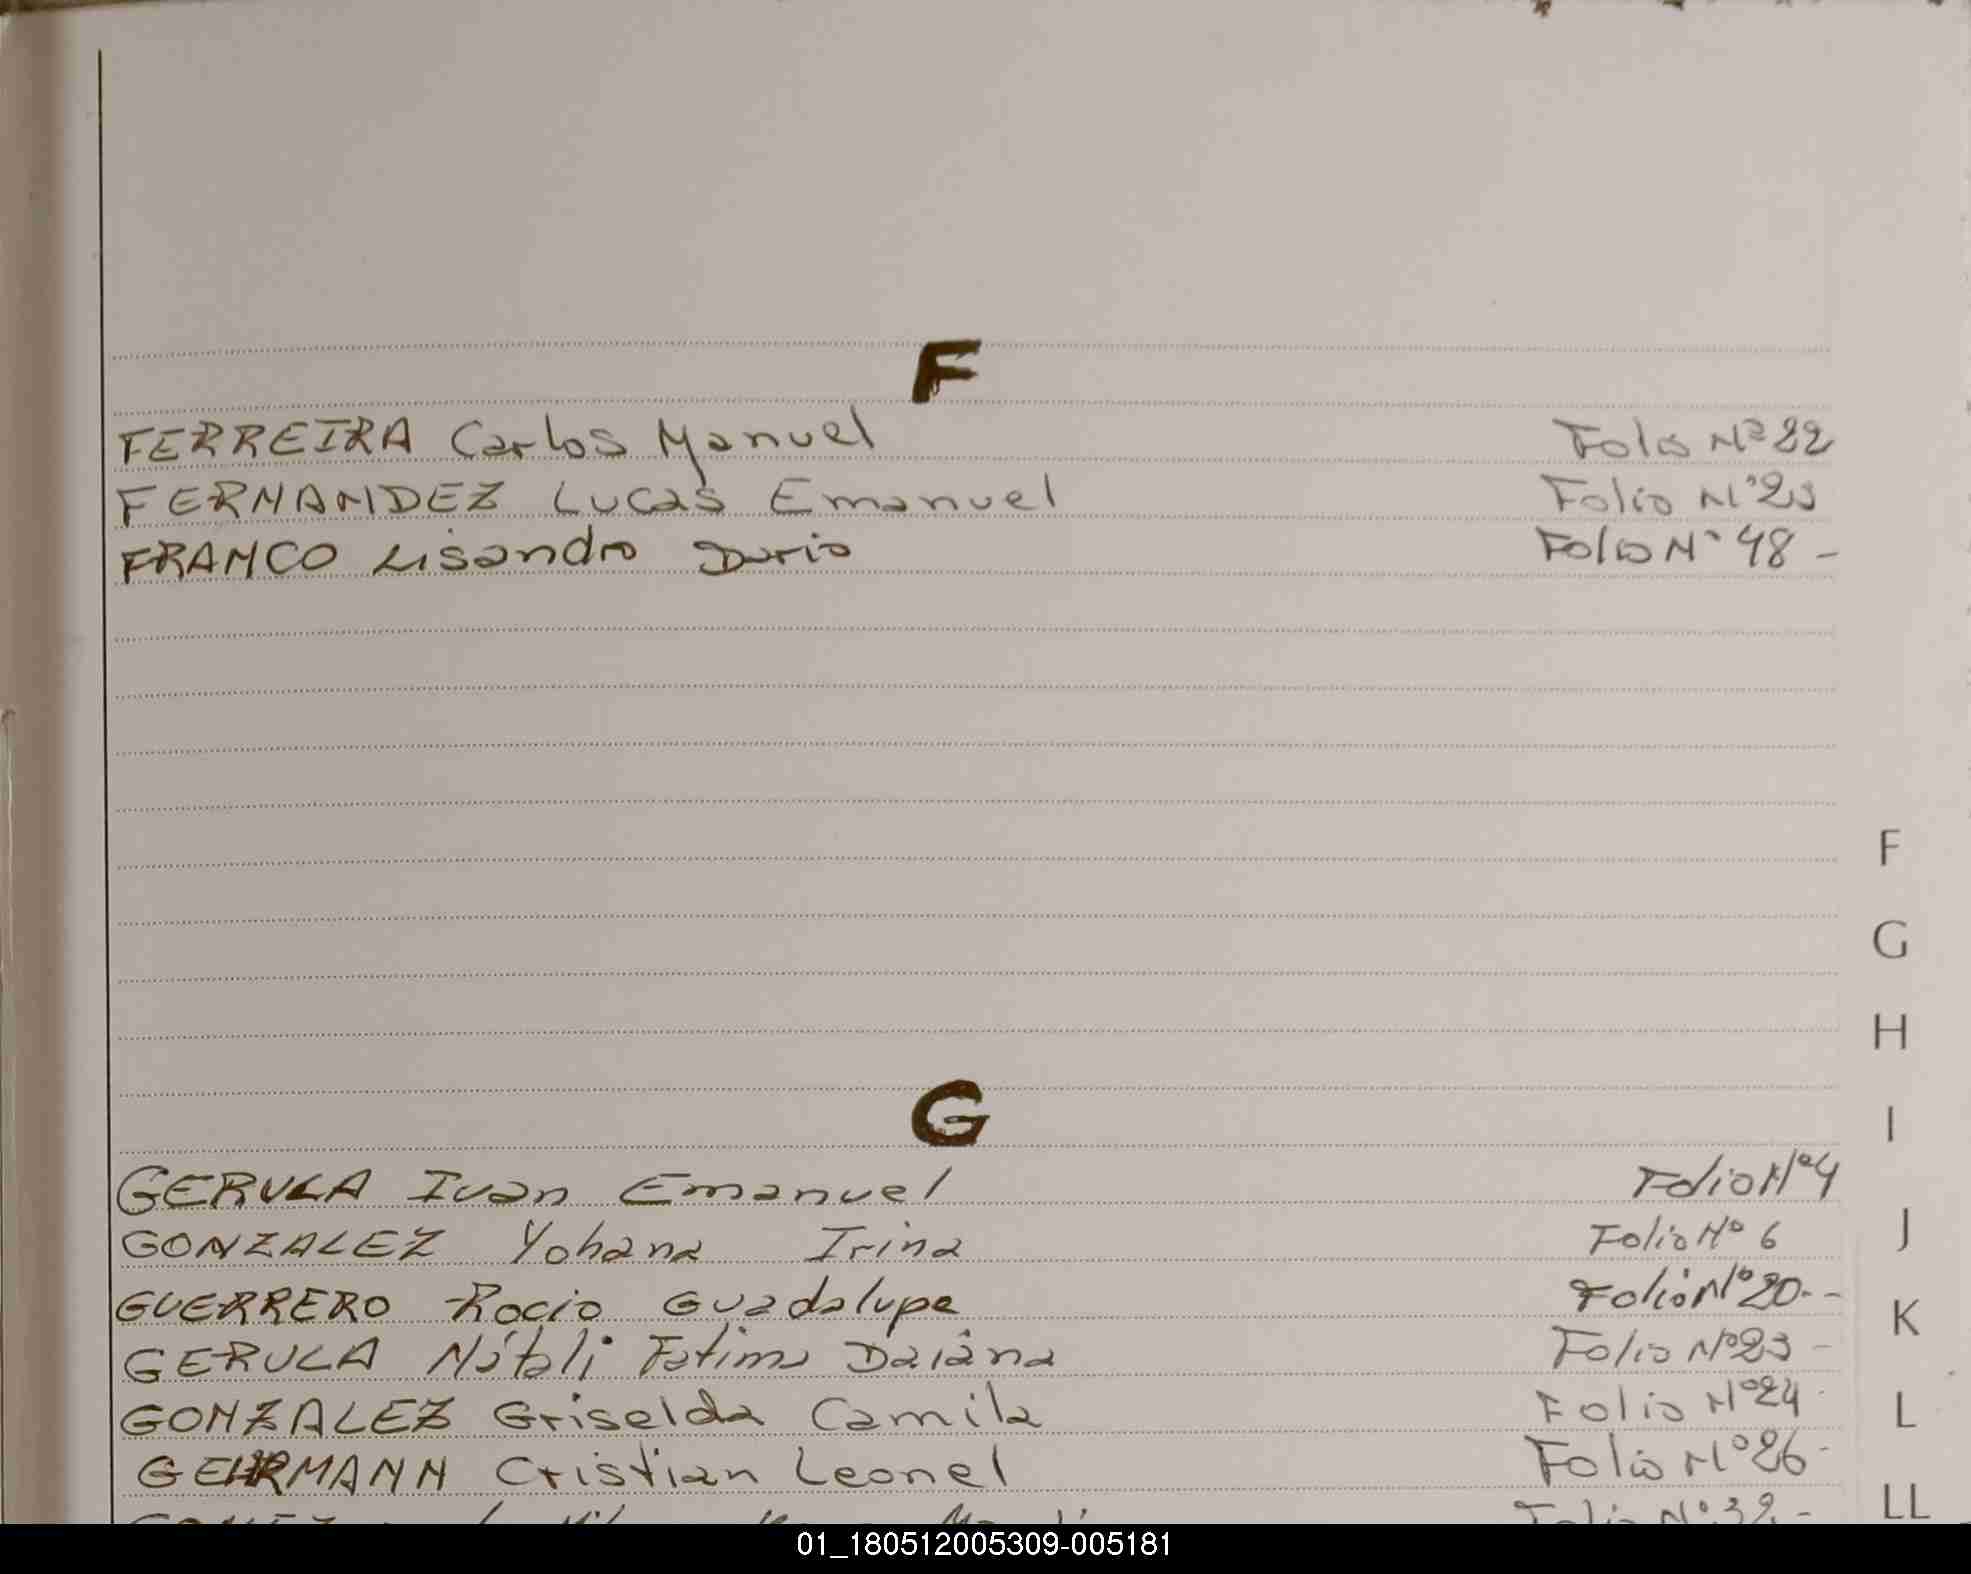 F
FERREIRA Carlos Manuel Folio Nº 22
FERNANDEZ Lucas Emanuel Folio Nº 23
FRANCO Lisandro Dario Folio Nº 48 -
F
G
H
I
G
GERULA Ivan Emanuel Folio Nº 4
GONZALEZ Yohana Irina Folio Nº 6
J
GUERRERO Rocio Guadalupe Folio Nº 20--
K
GERULA Nátali Fatima Daiana Folio Nº 23 -
GONZALEZ Griselda Camila Folio Nº 24
L
GEHRMANN Cristian Leonel Folio Nº 26-
Folio Nº 32-
LL
01_180512005309-005181